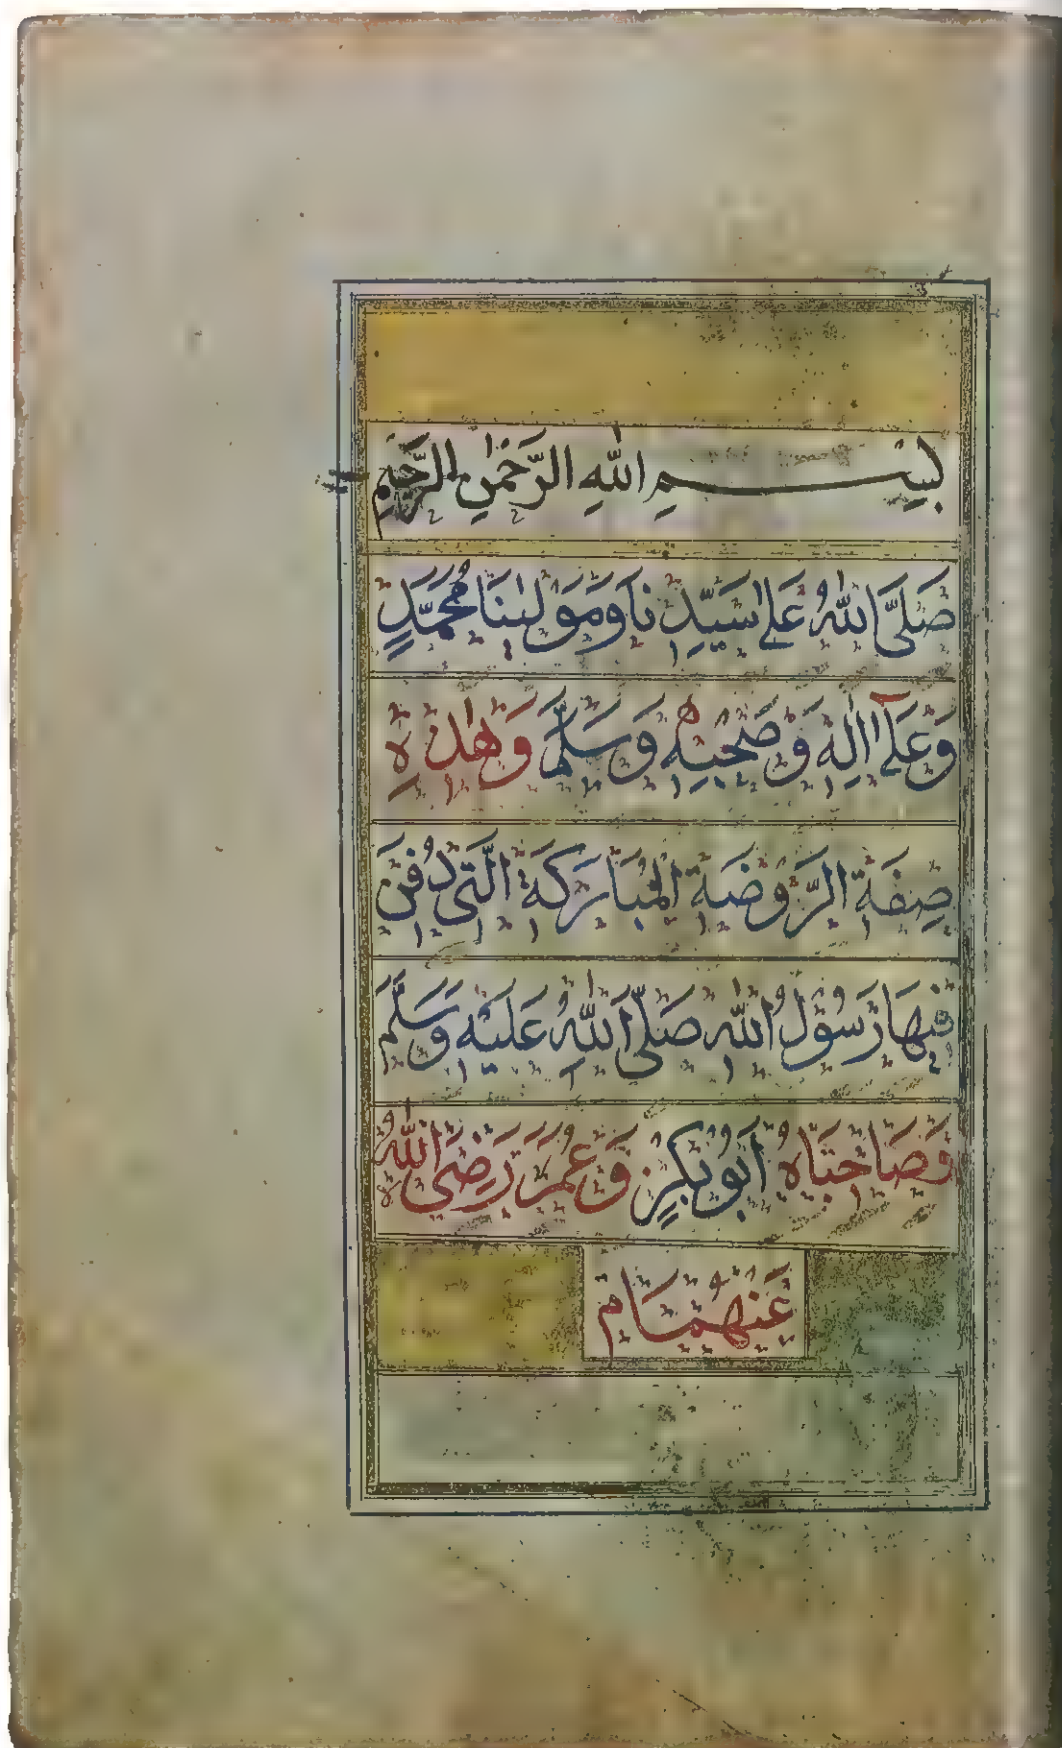 بِسْمِ اللهِ الرَّحْمٰنِ الرَّحِيمِ
صَلَّى اللهُ عَلَى سَيِّدِنَا وَمَوْلٰينَا مُحَمَّدٍ
وَعَلَى آلِهِ وَصَحْبِهِ وَسَلَّمَ وَهٰذِهِ
صِفَةُ الرَّوْضَةِ الْمُبَارَكَةِ الَّتِي دُفِنَ
فِيهَا رَسُوْلُ اللهِ صَلَّى اللهُ عَلَيْهِ وَسَلَّمَ
وَصَاحِبَاهُ أَبُو بَكْرٍ وَعُمَرَ رَضِيَ اللهُ
عَنْهُمَا م